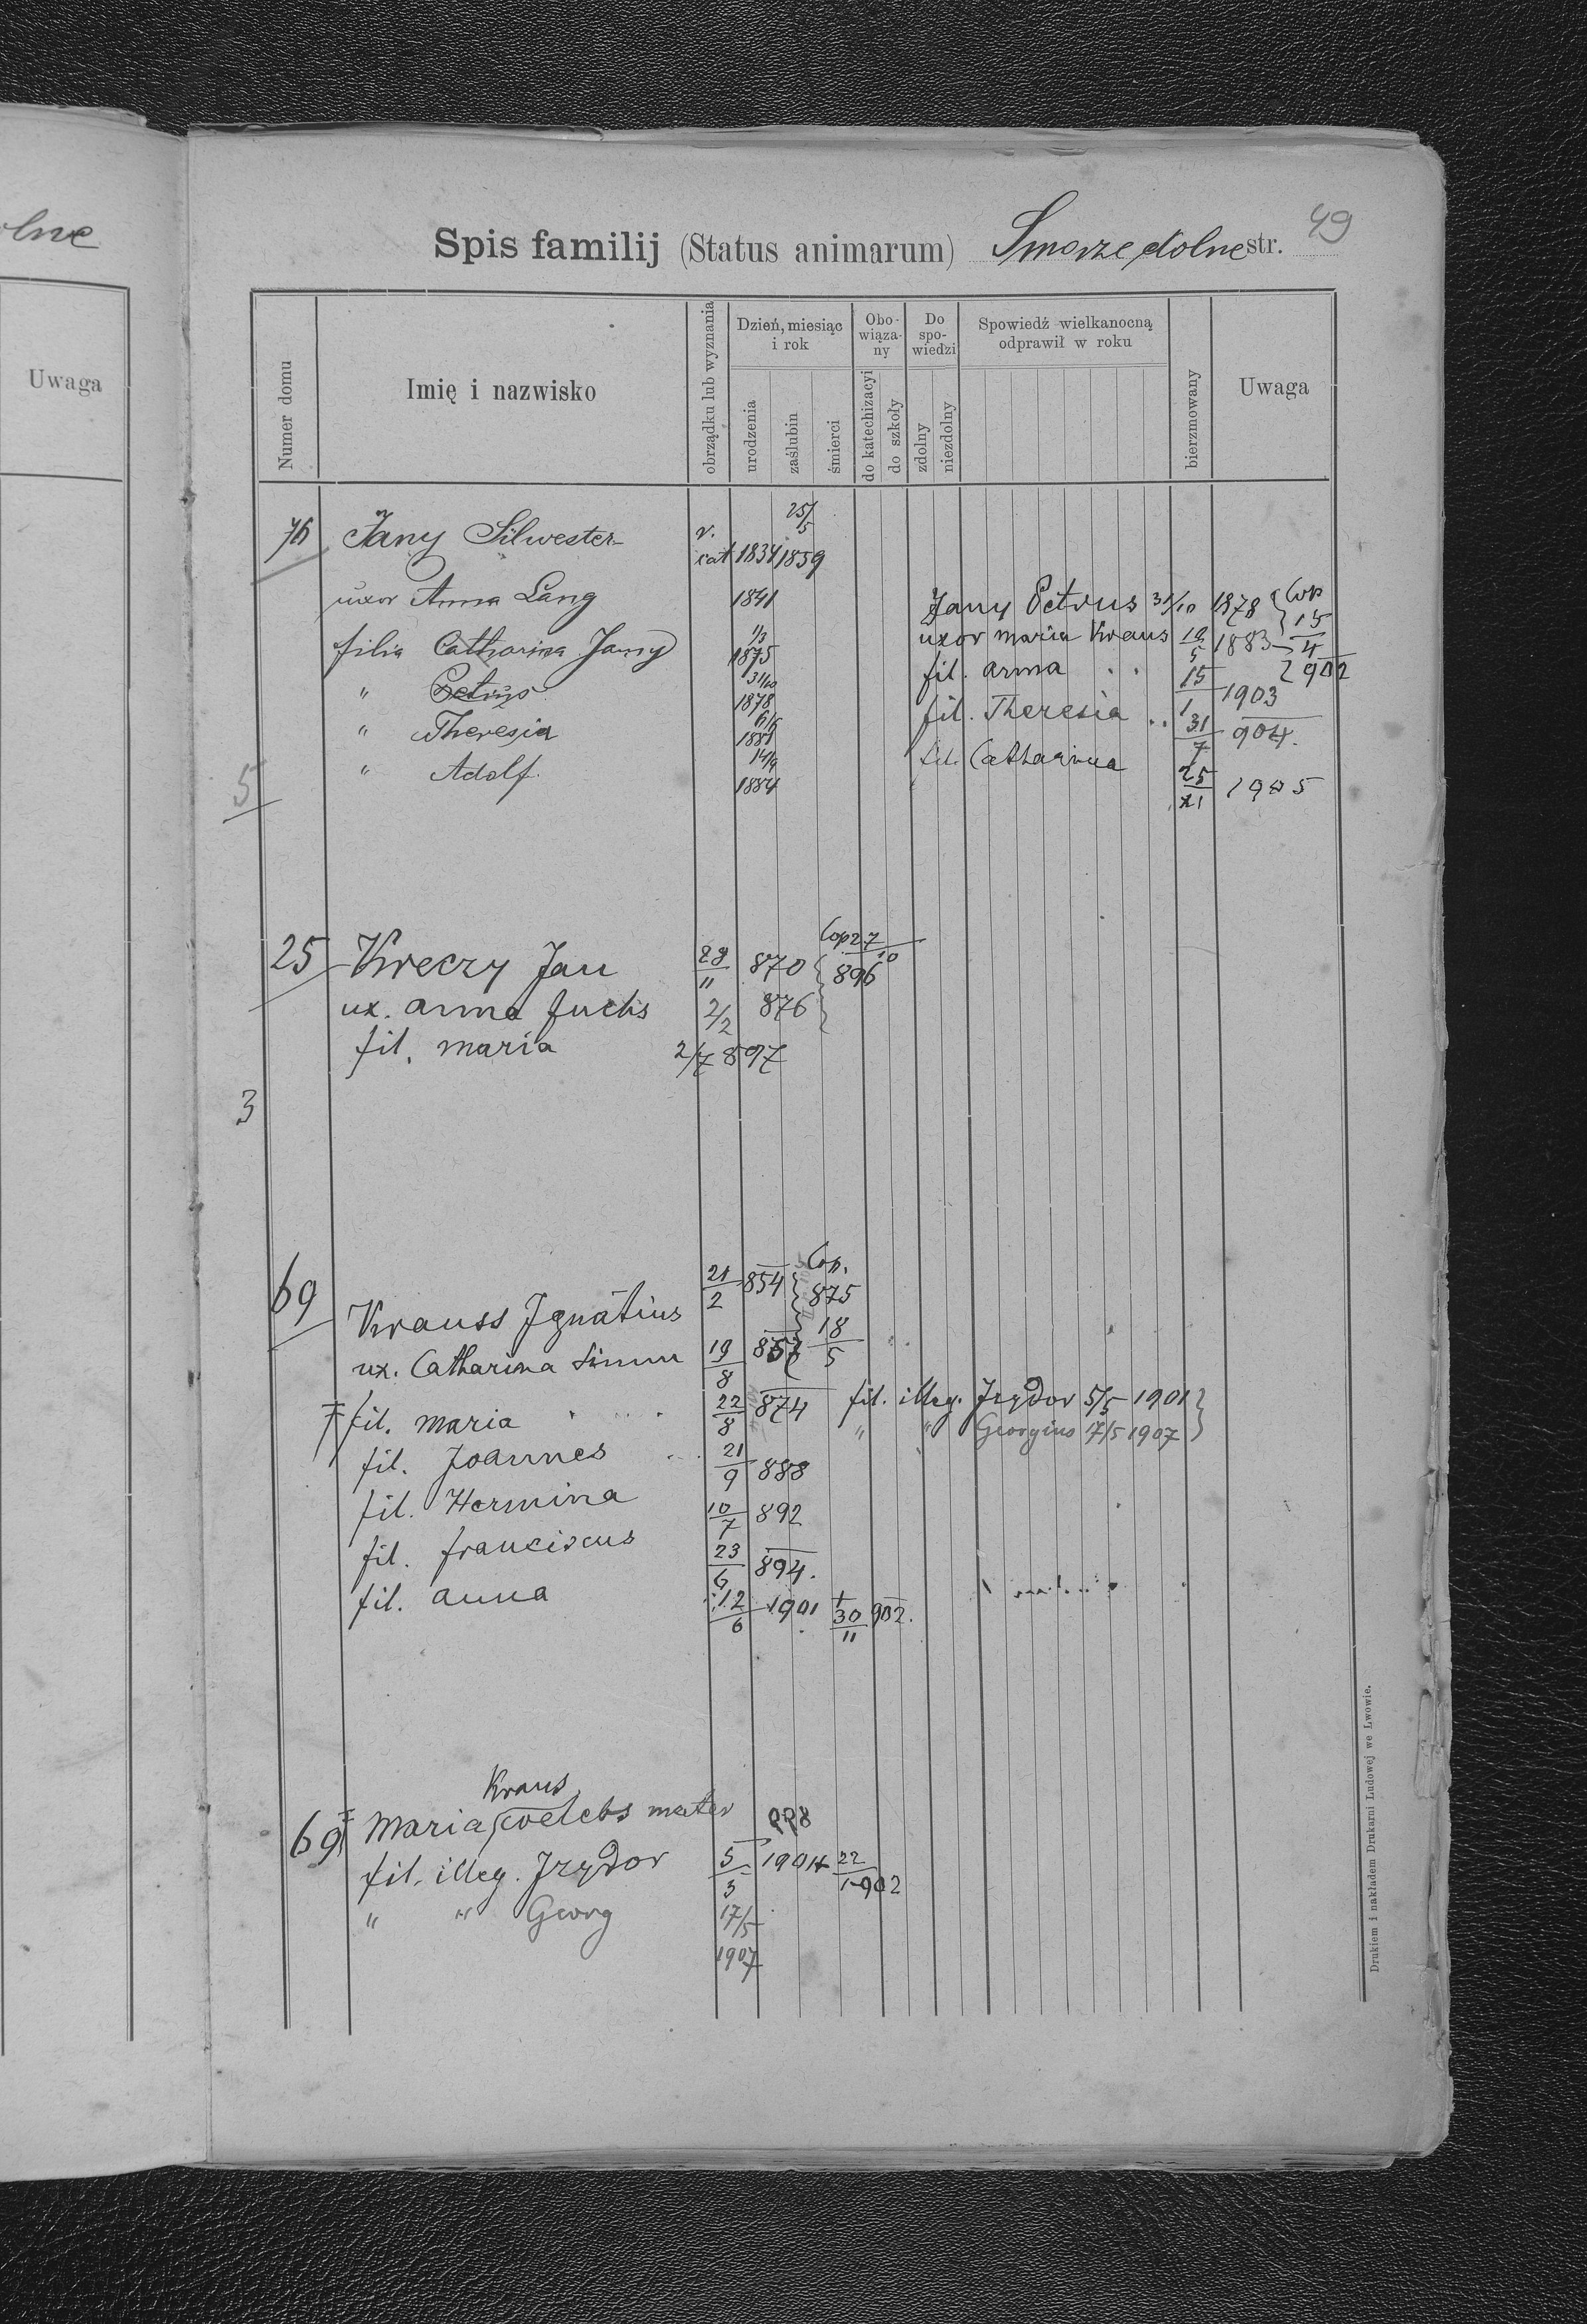 olne
Uwaga
49
Spis familij (Status animarum) Smorze dolne str.
Numer domu
Imię i nazwisko
obrządku lub wyznania
Dzień, miesiąc i rok
urodzenia
zaślubin
śmierci
Obowiązany
do katechizacyi
do szkoły
Do spowiedzi
zdolny
niezdolny
Spowiedź wielkanocną odprawił w roku
bierzmowany
Uwaga
76 Jany Silwester r. cat 1834 25/5 1859
uxor Anna Lang 1841
filia Catharina Jany 1/3 1875
" Petrus 31/10 1878
" Theresia 1881
" Adolf. 14/9 1884
5
Jany Petrus 31/10 1878 } Cop 15/4 902
uxor Maria Kraus 1883
fil. Anna . . 15/1 1903
fil. Theresia . . 31/7 904.
fil. Catharina 25/XI 1905
25 Kreczy Jan 28/11 870 } Cop 27/10 896
ux. Anna Fuchs 2/2 876
fil. Maria 2/7 897
3
69 Krauss Ignatius 21/2 854 } Cop. 875 18/5
ux. Catharina 19/8 857
‡ fil. Maria 22/8 874 fil. illeg. Izydor 5/5 1901 }
" " Georgius 17/5 1907
fil. Joannes 21/9 888
fil. Hermina 10/7 892
fil. Franciscus 23/6 894.
fil. Anna 12/6 1901 † 30/11 902.
Kraus
69 Maria coelebs mater
fil. illeg. Izydor 5/3 1901 † 22/1 902
" " Georg 17/5 1907
Drukiem i nakładem Drukarni Ludowej we Lwowie.